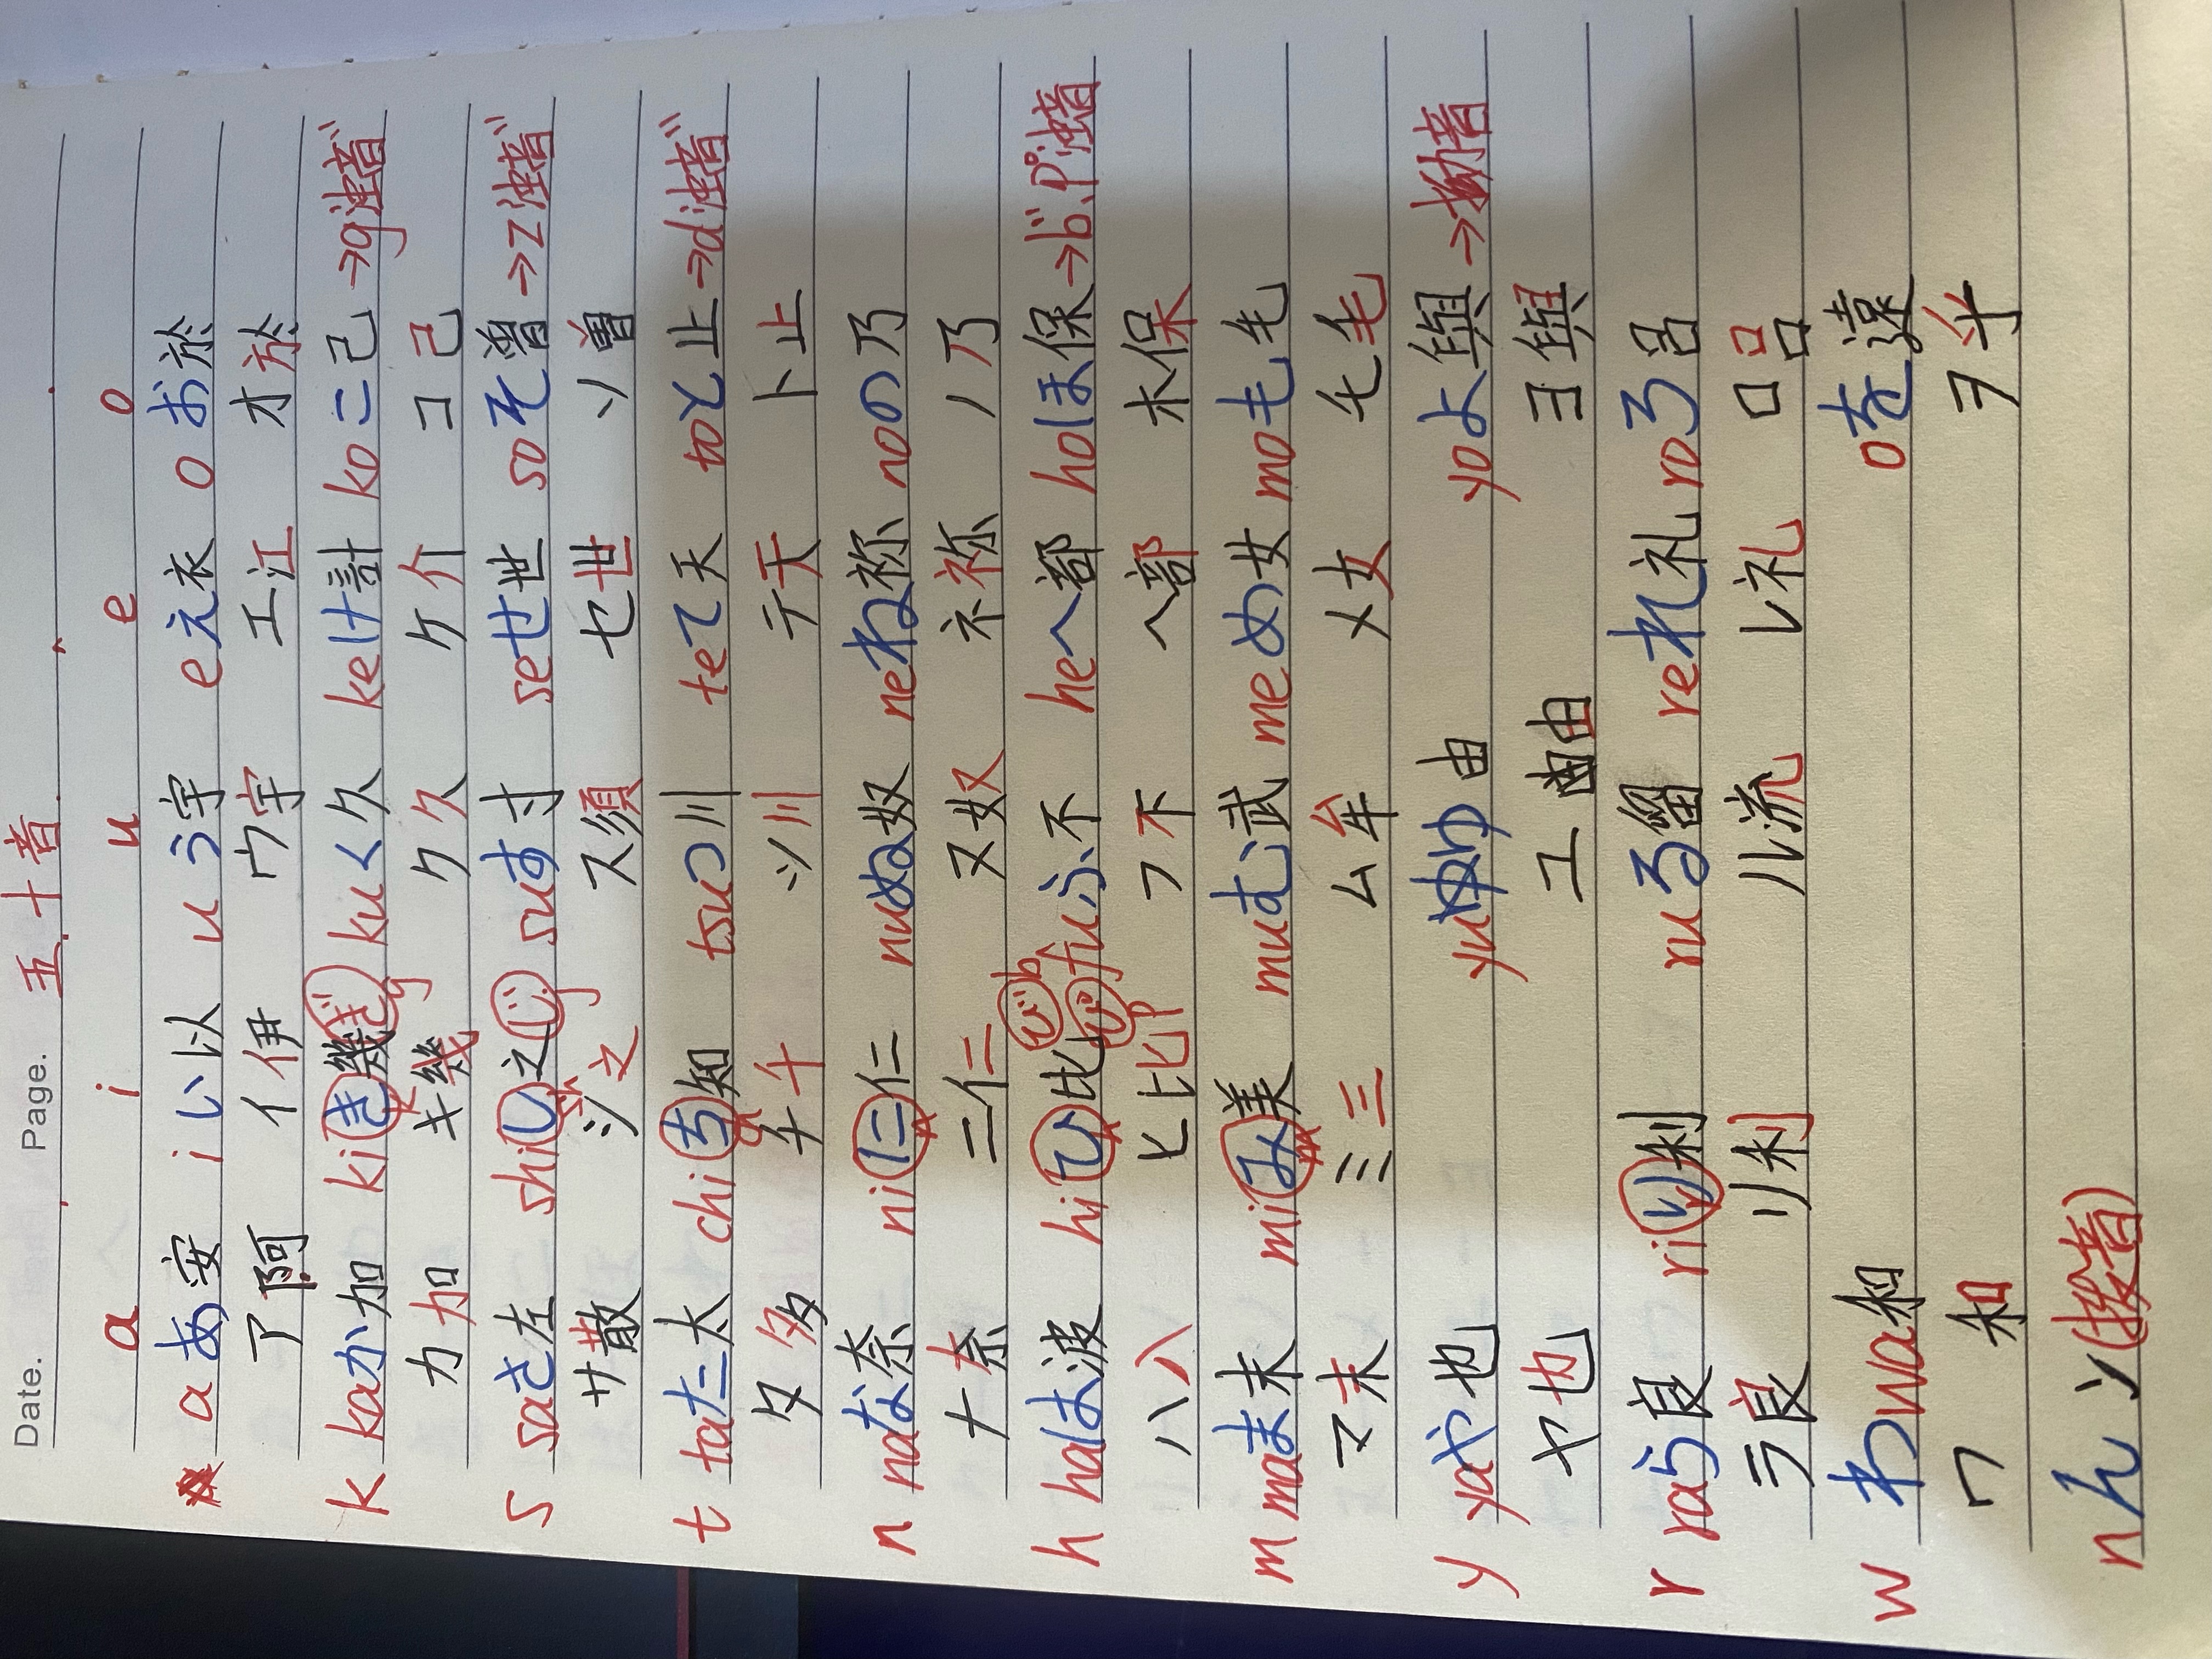 Date. Page. 五十音
a i u e o
a あ 安 i い 以 u う 宇 e え 衣 o お 於
ア 阿 イ 伊 ウ 宇 エ 江 オ 於
k ka か 加 ki き 幾 ぎ ku く 久 ke け 計 ko こ 己 →g浊音゛
k g
カ 加 キ 幾 ク 久 ケ 介 コ 己
s sa さ 左 shi し 之 じ su す 寸 se せ 世 so そ 曽 →z浊音゛
sh j
サ 散 シ 之 ス 須 セ 世 ソ 曽
t ta た 太 chi ち 知 tsu つ 川 te て 天 to と 止 →d浊音゛
ch
タ 多 チ 千 ツ 川 テ 天 ト 止
n na な 奈 ni に 仁 nu ぬ 奴 ne ね 祢 no の 乃
n
ナ 奈 ニ 仁 ヌ 奴 ネ 祢 ノ 乃
び b
h ha は 波 hi ひ 比 ぴ fu ふ 不 he へ 部 ho ほ 保 →b゛、p°浊音
h p
ハ 八 ヒ 比 フ 不 ヘ 部 ホ 保
m ma ま 末 mi み 美 mu む 武 me め 女 mo も 毛
m
マ 末 ミ 三 ム 牟 メ 女 モ 毛
y ya や 也 yu ゆ 由 yo よ 與 →拗音
ヤ 也 ユ 由 ヨ 與
r ra ら 良 ri り 利 ru る 留 re れ 礼 ro ろ 呂
r
ラ 良 リ 利 ル 流 レ 礼 ロ 呂
w わ wa 和 o を 遠
ワ 和 ヲ 乎
n ん ン (拨音)